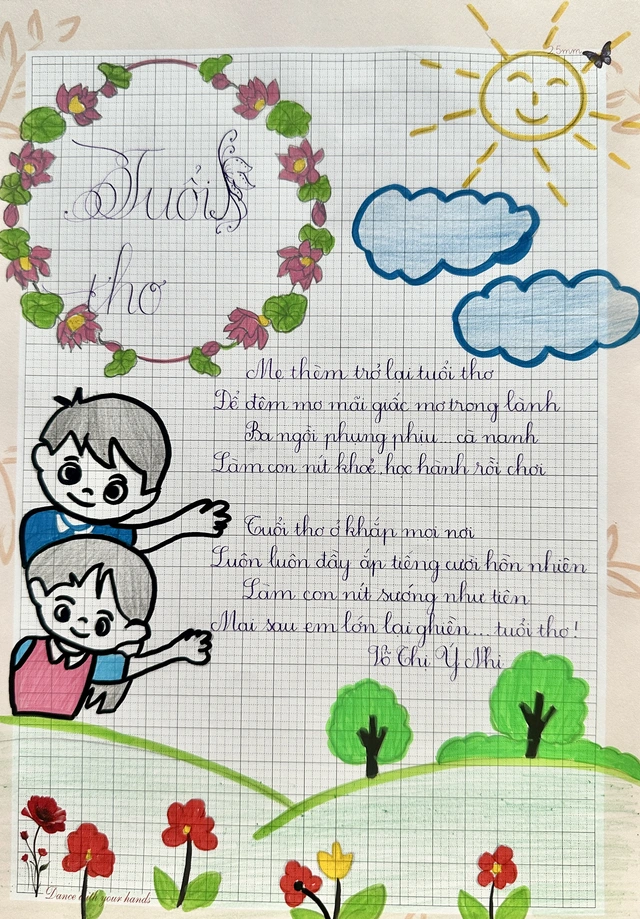 25mm
Tuổi
thơ
Mẹ thèm trở lại tuổi thơ
Để đêm mơ mãi giấc mơ trong lành
Ba ngồi phụng phịu... cà nanh
Làm con nít khoẻ, học hành rồi chơi
Tuổi thơ ở khắp mọi nơi
Luôn luôn đầy ắp tiếng cười hồn nhiên
Làm con nít sướng như tiên
Mai sau em lớn lại ghiền... tuổi thơ!
Võ Thị Ý Nhi
Dance with your hands